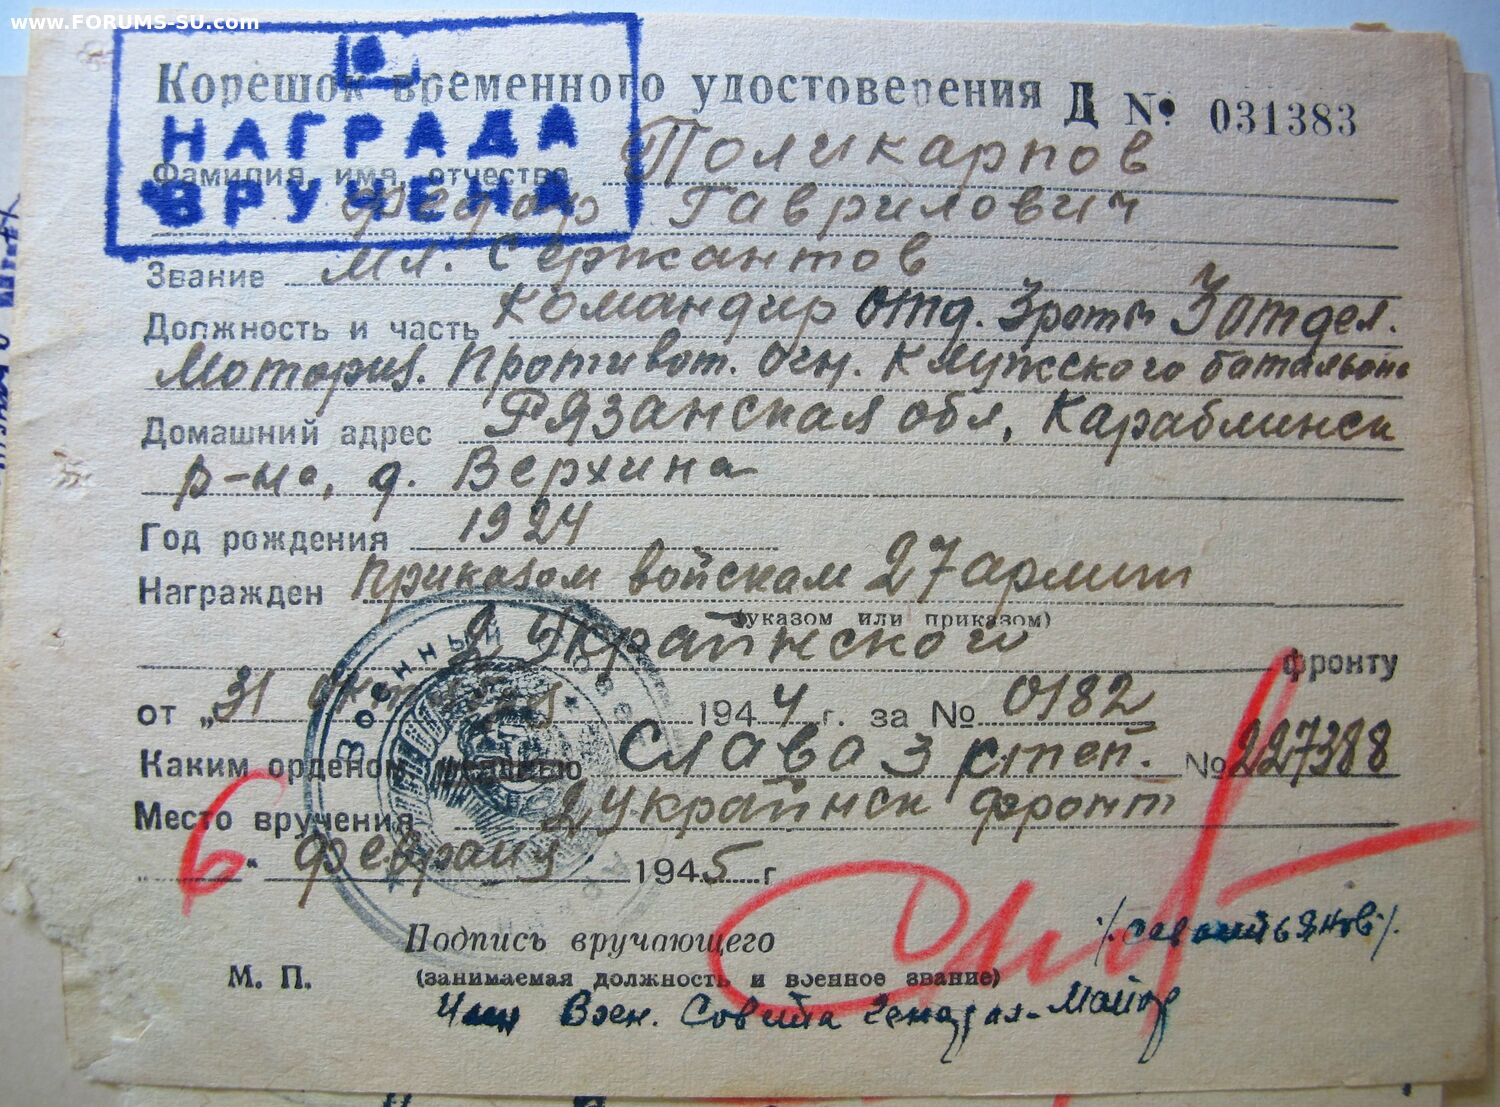 www.FORUMS-SU.com
Корешок временного удостоверения Д № 031383
НАГРАДА
ВРУЧЕНА
Фамилия, имя, отчество Поликарпов
Федор Гаврилович
Звание Мл. Сержантов
Должность и часть Командир отд. 3 роты 3 отдел.
Моториз. Противот. огн. Клужского батальона
Домашний адрес Рязанская обл, Караблинск
р-на, д. Верхина
Год рождения 1924
Награжден приказом войскам 27 армии
(указом или приказом)
2 Украинского фронту
от „31 октября 1944 г. за № 0182
Каким орденом медалью Слава 3 степ. № 227388
Место вручения 2 Украинск фронт
6 " февраля 1945 г
Военный Совет
Подпись вручающего
М. П. (занимаемая должность и военное звание)
Член Воен. Совета Генерал-Майор